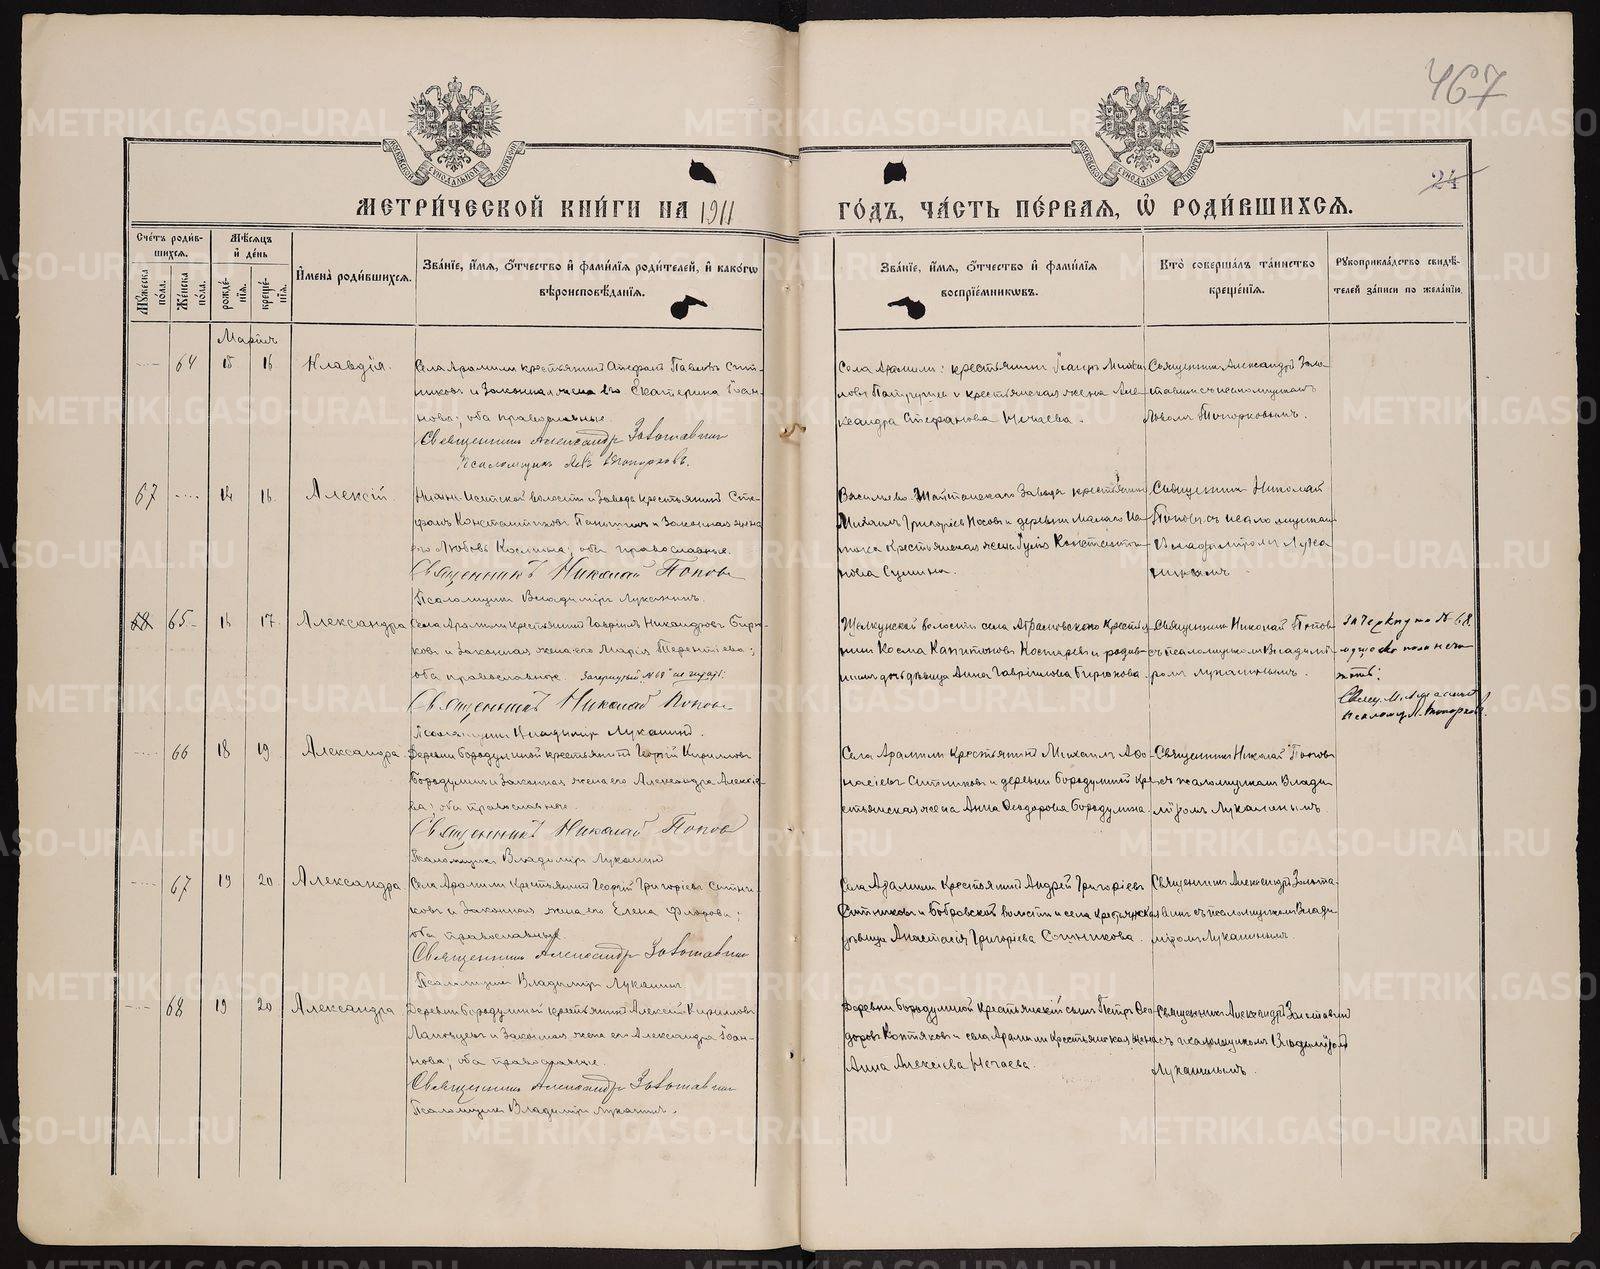 467
24
МЕТРИ́ЧЕСКОЙ КНИ́ГИ НА 1911
ГО́ДЪ, ЧА́СТЬ ПЕ́РВАѦ, Ѡ҆ РОДИ́ВШИХСѦ.
Сче́тъ роди́в-
шихсѧ.
Мꙋ́жеска по́ла.
Же́нска по́ла.
Мѣ́сѧцъ
и҆ де́нь
рожде́-
нїѧ.
креще́-
нїѧ.
И҆мена̀ роди́вшихсѧ.
Зва́нїе, и҆́мѧ, ѻ҆́тчество и҆ фами́лїѧ роди́телей, и҆ како́гѡ
вѣроисповѣ́данїѧ.
Зва́нїе, и҆́мѧ, ѻ҆́тчество и҆ фами́лїѧ
воспрїе́мникѡвъ.
Кто̀ соверша́лъ та́инство
креще́нїѧ.
Рꙋкоприкла́дство свидѣ́-
телей за́писи по жела́нїю.
Мартъ
64 15 16 Клавдія.
Села Арамили крестьянинъ Павловъ Сит-
никовъ и Законная жена его Екатерина Іоан-
нова; оба православные
Священникъ Александръ Золотавинъ
Псаломщикъ Левъ Топорковъ.
Села Арамили: крестьянинъ
и крестьянская жена Але-
ксандра Стефанова Нечаева.
Священникъ Александръ Золо-
тавинъ съ псаломщикомъ
Львомъ Топорковымъ.
67 14 16 Алексій.
Нижне-Исетской волости и Завода крестьянинъ Сте-
фанъ Константиновъ и Законная жена
его Любовь Космина; оба православные.
Священникъ Николай Поповъ
Псаломщикъ Владиміръ Луканинъ.
Васильево-Шайтанскаго Завода крестьянинъ
Михаилъ Григорьевъ Носовъ и деревни Малаго Ис-
тока Крестьянская жена Константи-
нова
Священникъ Николай
Поповъ съ псаломщикомъ
Владиміромъ Лука
нинымъ
68 65 16 17 Александра
Села Арамили крестьянинъ Гавріилъ Никандровъ Бирю-
ковъ и Законная жена его Марія Терентіева;
оба православные. Зачеркнутый "№ 68" не читать.
Священникъ Николай Поповъ
Псаломщикъ Владиміръ Луканинъ.
Щелкунской волости села Аврамовскаго Крестья-
нинъ Косма Капитоновъ и родив-
шихъ дочь дѣвица Анна Гавріилова Бирюкова.
Священникъ Николай Попов
съ псаломщикомъ Владимі-
ромъ Луканинымъ.
зачеркнуто № 68
66 18 19 Александра
Деревни Бородулиной крестьянинъ Георгій Кирилловъ
Бородулинъ и Законная жена его Александра Алексіе-
ва; оба православные.
Священникъ Николай Поповъ
Псаломщикъ Владиміръ Луканинъ
Села Арамили Крестьянинъ Михаилъ Афа-
насіевъ Ситниковъ и деревни Бородулиной Кре-
стьянская жена Анна Ѳеодорова Бородулина.
Священникъ Николай Поповъ
съ псаломщикомъ Влади
міромъ Луканинымъ
67 19 20 Александра
Села Арамили Крестьянинъ Георгій Григорьевъ Ситни-
ковъ и Законная жена его Елена Флорова;
оба православные.
Священникъ Александръ Золотавинъ
Псаломщикъ Владиміръ Луканинъ
Села Арамили Крестьянинъ Андрей Григоріевъ
Ситниковъ и Бобровской волости и села Крестьянская
дѣвица Анастасія Григорьева Ситникова.
Священникъ Александръ Золота-
винъ съ псаломщикомъ Влади
міромъ Луканинымъ
68 19 20 Александра
Деревни Бородулиной крестьянинъ Алексій Кирилловъ
и Законная жена его Александра Іоан-
нова; оба православные.
Священникъ Александръ Золотавинъ
Псаломщикъ Владиміръ Луканинъ.
Деревни Бородулиной Крестьянскій сынъ Петръ Ѳео-
доровъ Костяковъ и села Арамили Крестьянская жена
Анна Алексіева Нечаева.
Священникъ Александръ Золотавинъ
съ псаломщикомъ Владиміромъ
Луканинымъ.
METRIKI.GASO-URAL.RU